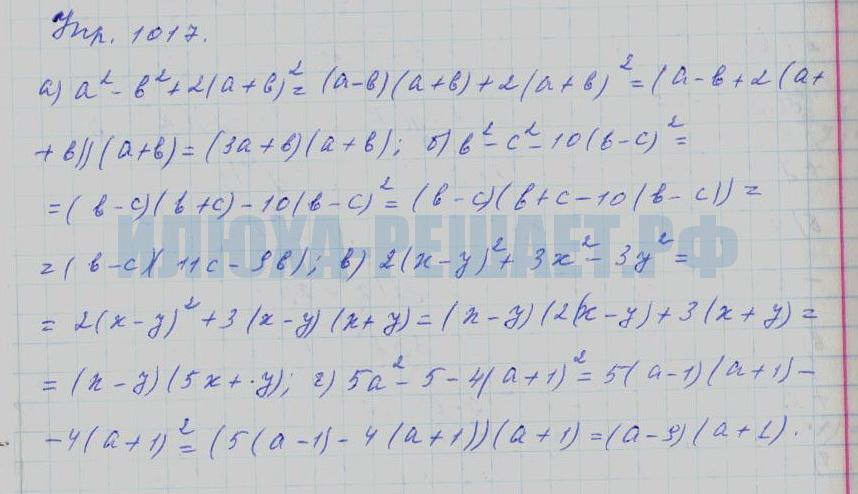 Упр. 1017.
а) a² - b² + 2(a+b)² = (a-b)(a+b) + 2(a+b)² = (a-b+2(a+
+b))(a+b) = (3a+b)(a+b); б) b² - c² - 10(b-c)² =
= (b-c)(b+c) - 10(b-c)² = (b-c)(b+c-10(b-c)) =
ИЛЮХА-РЕШАЕТ.РФ
= (b-c)(11c-9b); в) 2(x-y)² + 3x² - 3y² =
= 2(x-y)² + 3(x-y)(x+y) = (x-y)(2(x-y)+3(x+y) =
= (x-y)(5x+·y); г) 5a² - 5 - 4(a+1)² = 5(a-1)(a+1) -
- 4(a+1)² = (5(a-1) - 4(a+1))(a+1) = (a-9)(a+1).